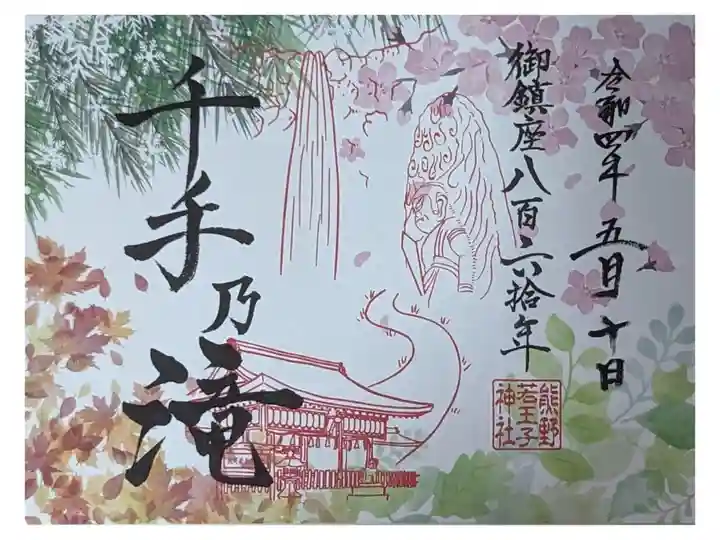 令和四年 五月 十日
御鎮座八百六拾年
熊野
若王子
神社
千手乃滝